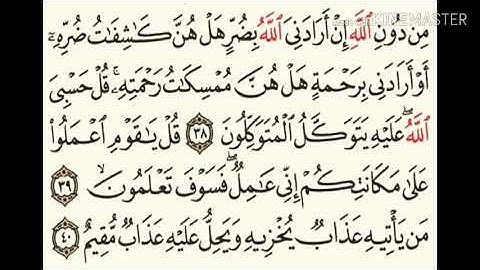 مِن دُونِ ٱللَّهِ إِنْ أَرَادَنِىَ ٱللَّهُ بِضُرٍّ هَلْ هُنَّ كَـٰشِفَـٰتُ ضُرِّهِۦٓ
أَوْ أَرَادَنِى بِرَحْمَةٍ هَلْ هُنَّ مُمْسِكَـٰتُ رَحْمَتِهِۦ ۚ قُلْ حَسْبِىَ
ٱللَّهُ ۖ عَلَيْهِ يَتَوَكَّلُ ٱلْمُتَوَكِّلُونَ ٣٨ قُلْ يَـٰقَوْمِ ٱعْمَلُوا۟
عَلَىٰ مَكَانَتِكُمْ إِنِّى عَـٰمِلٌ ۖ فَسَوْفَ تَعْلَمُونَ ٣٩
مَن يَأْتِيهِ عَذَابٌ يُخْزِيهِ وَيَحِلُّ عَلَيْهِ عَذَابٌ مُّقِيمٌ ٤٠
KINEMASTER